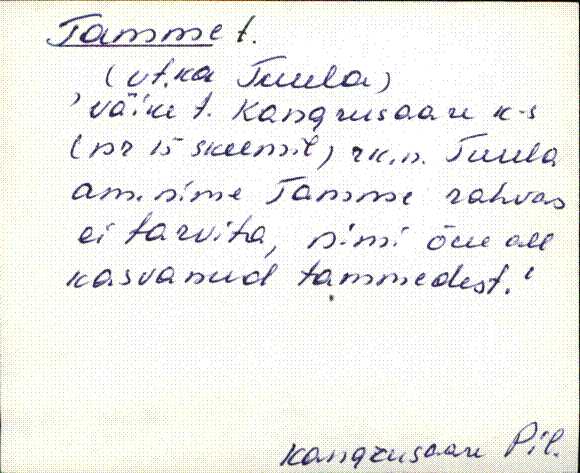 Tamme t.
(vt. ka Tuula)
'väike t. Kangrusaare k-s
(nr 15 skeemil) rk.n. Tuula
am. nime Tamme rahvas
ei tarvita, nimi õue all
kasvanud tammedest.'
Kangrusaare Pil.